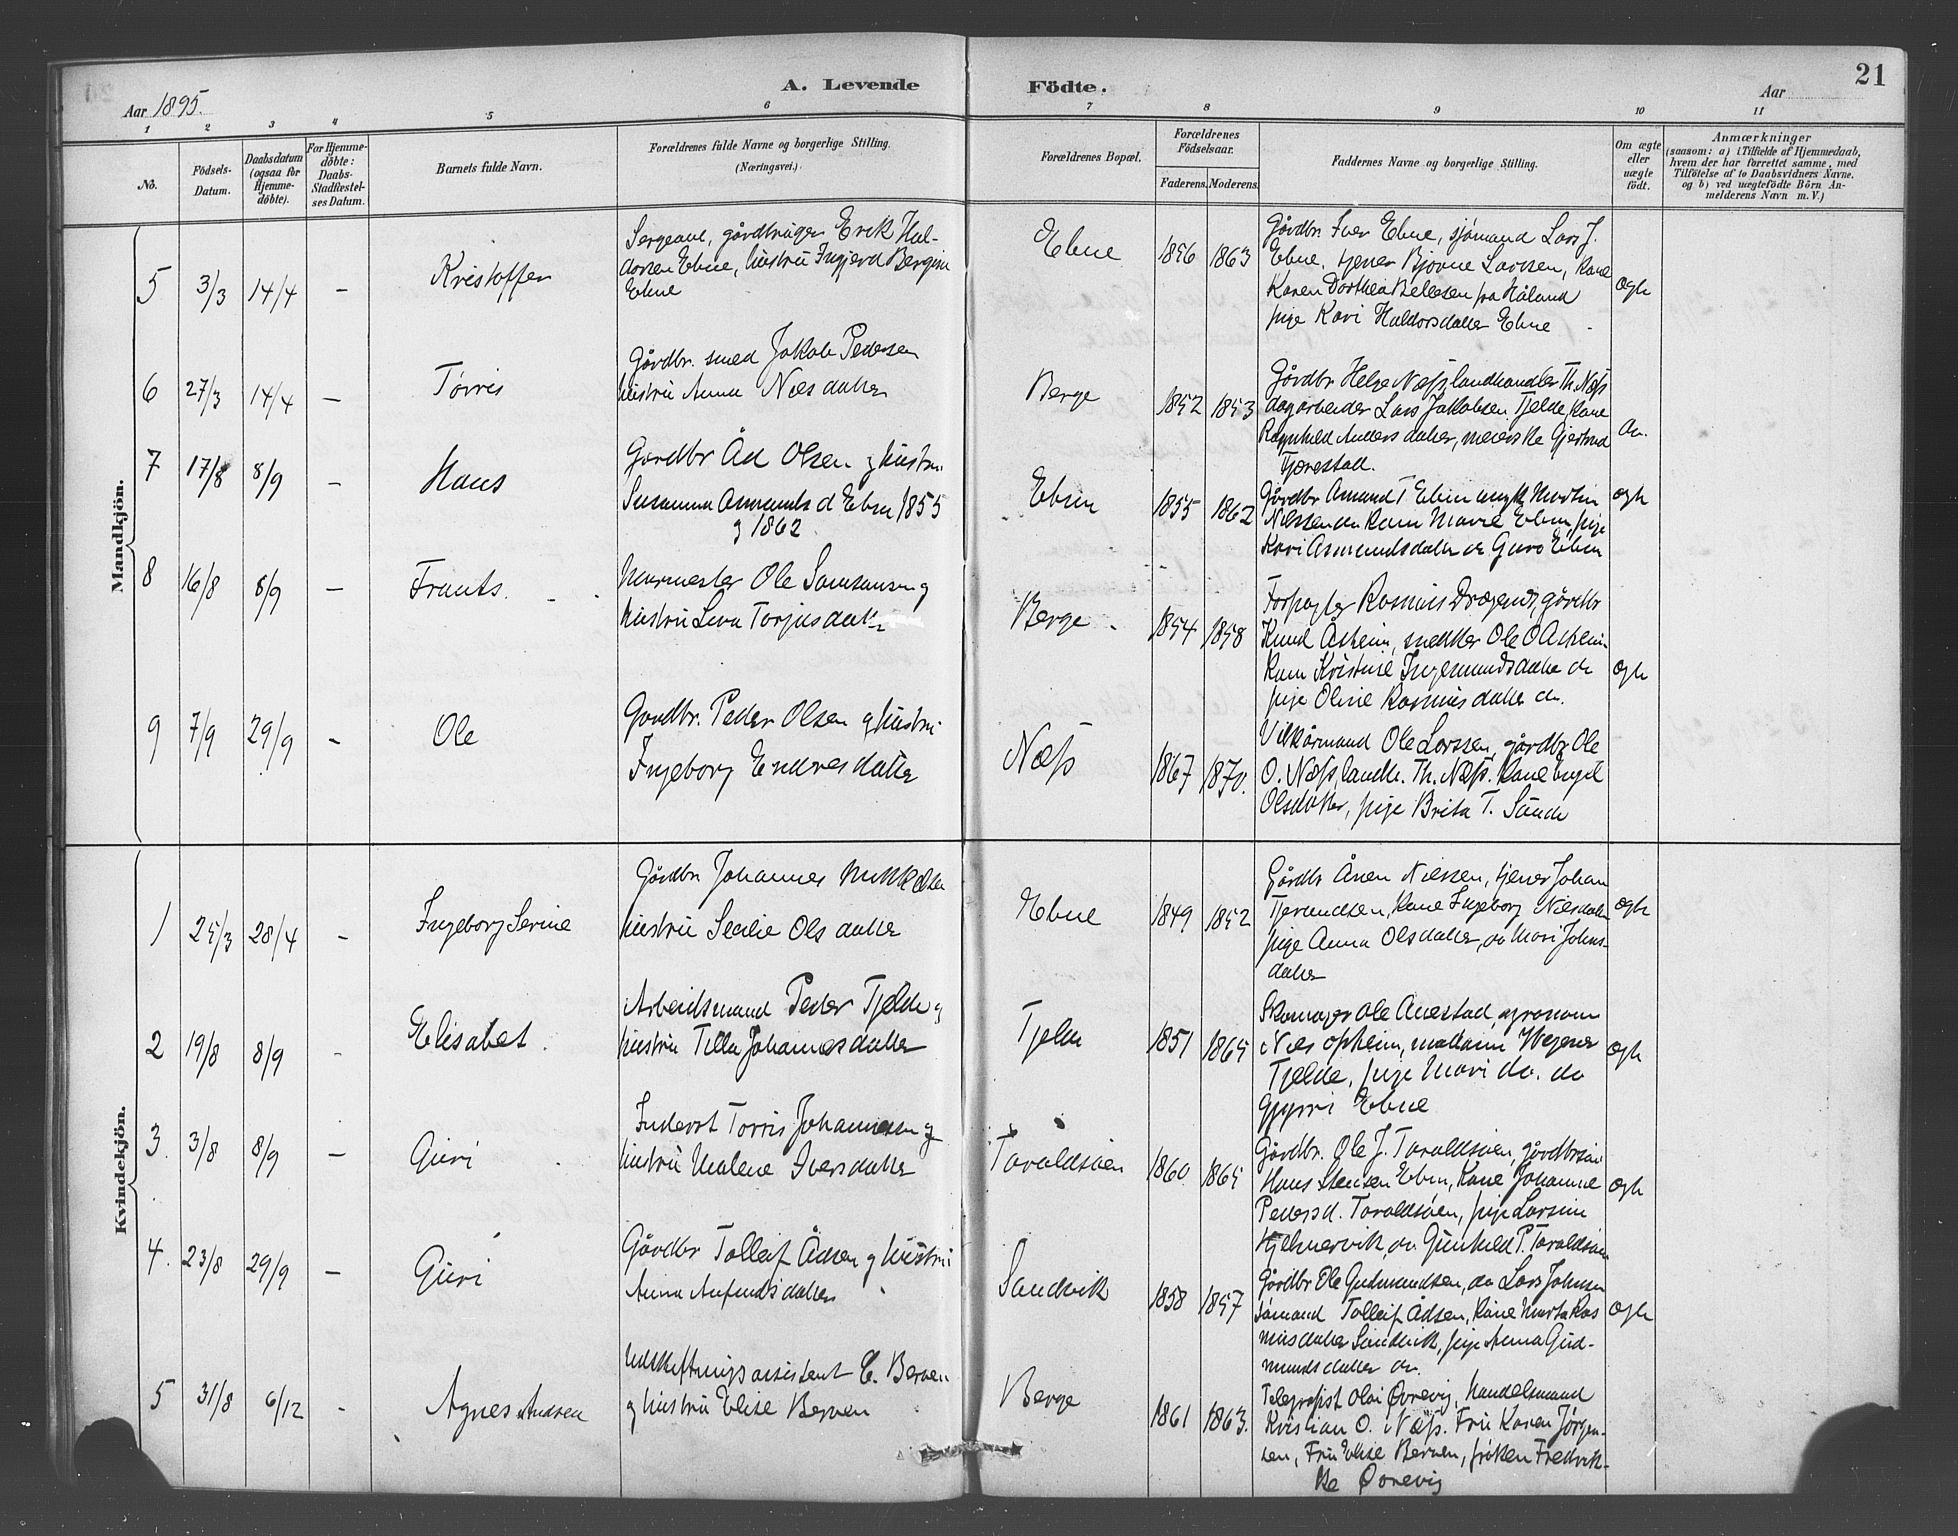 21
A. Levende Födte.
Aar 1895. Aar
1 2 3 4 5 6 7 8 9 10 11
No.
Födsels-Datum.
Daabsdatum (ogsaa for Hjemme-døbte).
For Hjemme-døbte: Daabs-Stadfæstel-ses Datum.
Barnets fulde Navn.
Forældrenes fulde Navne og borgerlige Stilling. (Næringsvei.)
Forældrenes Bopæl.
Forældrenes Födselsaar.
Faderens. Moderens.
Faddernes Navne og borgerlige Stilling.
Om ægte eller uægte født.
Anmærkninger
(saasom: a) i Tilfælde af Hjemmedaab,
hvem der har forrettet samme, med
Tilföielse af to Daabsvidners Navne.
og b) ved uægtefödte Börn An-
melderens Navn m. V.)
Mandkjön.
5 3/3 14/4 – Kristoffer
Sergeant, gårdbruger Erik Hal-
dorsen Ebne, hustru Ingjerd Bergine
Ebne
Ebne 1856 1863
Gårdbr. Iver Ebne, sjømand Lars J.
Ebne, tjener Bjorne Larsen, Kone
Karen Dorthea fra Håland
pige Kari Haldorsdatter Ebne
ægte
6 27/3 14/4 – Tørris
Gårdbr. smed Jakob Pedersen
hustru Anna Nilsdatter
Berge 1852 1853
Gårdbr Helge Næss, landhandler Th. Næss
dagarbeider Lars Jakobsen Tjelde, Kone
Ragnhild Andersdatter, meierske Gjertrud
Tjerestad.
do.
7 17/8 8/9 – Hans
Gardbr Åd Olsen og hustru
Susanna Asmunds d Ebne 1855
og 1862
Ebne 1855 1862
Gårdbr Amund T Ebne ungk Martin
Nilssen do Kone Marie Ebne, pige
Kari Asmundsdatter do Guro Ebne
ægte
8 16/8 8/9 – Frants.
Murmester Ole Samsonsen og
hustru Lina Torjusdatter
Berge. 1854 1858
Forpagter Rasmus Drageness, gårdbr
Knud Askeim, snekker Ole O Askeim
Kone Kristine Ingemundsdatter do
pige Oline Rasmusdatter do.
ægte
9 7/9 29/9 – Ole
Gardbr. Peder Olsen og hustru
Ingeborg Endresdatter
Næss 1867 1870.
Vilkårmand Ole Larssen, gårdbr Ole
O. Næss, landh. Th. Næss. Kone Engel
Olsdatter, pige Brita T. Sunde
Kvindekjön.
1 25/3 28/4 – Ingeborg Serine
Gårdbr Johannes
hustru Secilie Olsdatter
Ebne 1849 1852
Gårdbr Ånen Nilssen, tjener Johan
Tjerandsen, Kone Ingeborg Nilsdatter
pige Anna Olsdatter, do Mari Johns-
datter
ægte
2 19/8 8/9 - Elisabet.
Arbeidsmand Peder Tjelde og
hustru Tilla Johannesdatter
Tjelde 1851 1865
Skomager Ole Anestad, agronom
Nils Opheim, madam Wegner
Tjelde, pige Mari do. do
Gjyrri Ebne
ægte
3. 3/8 8/9 – Guri
Inderst Torris Johannessen og
hustru Malene Iversdatter
Taraldsøen 1860 1865
Gårdbr. Ole J. Taraldsøen, gårdbrsøn
Hans Stensen Ebne, Kone Johanne
Pedersd. Taraldsøen, pige Larsine
Hjelmervik, do. Gunhild P. Taraldsøen
ægte
4. 23/8 29/9 – Guri
Gårdbr Tolleif Ådsen og hustru
Anna Anfindsdatter
Sandvik 1858 1857
Gårdbr Ole Gudmundsen, do Lars Johnsen
sømand Tolleif Ådsen, Kone Marta Ras
musdatter Sandvik, pige Anna Gud-
mundsdatter do.
ægte
5 31/8 6/12 - Agnes Andrea
Udskiftningsassistent E. Berven
og hustru Elise Berven
Berge 1861 1863.
Telegrafist Olai Øvrevig, Handelsmand
Kristian O. Næss. Fru Karen Jørgen-
sen, Fru Elise Berven, frøken Fredrik-
ke Øvrevig